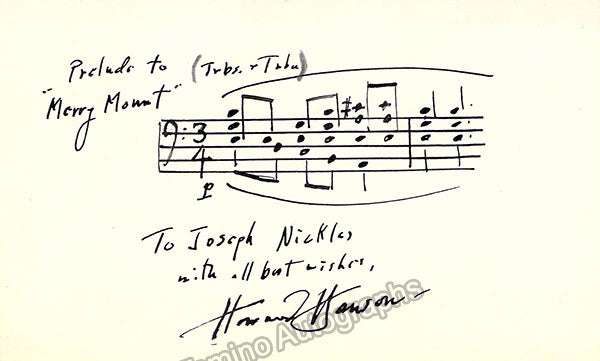 Prelude to (Trbs. + Tuba)
"Merry Mount"
3
4
p
To Joseph Nickles
with all best wishes,
Howard Hanson
Tamino Autographs